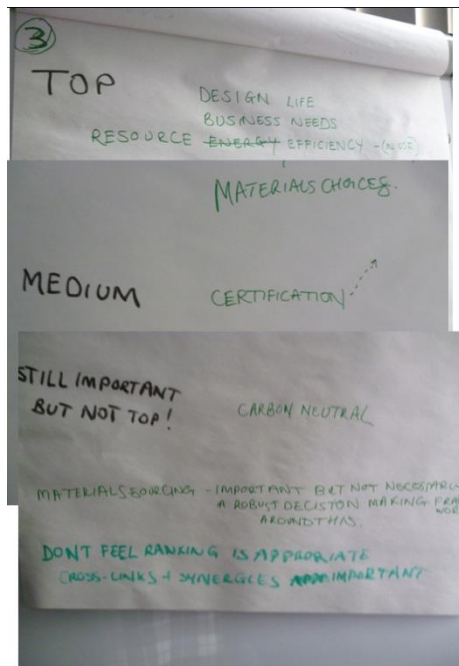 3
TOP
DESIGN LIFE
BUSINESS NEEDS
RESOURCE ENERGY EFFICIENCY - (IN USE)
MATERIALS CHOICES.
MEDIUM
CERTIFICATION
STILL IMPORTANT
BUT NOT TOP!
CARBON NEUTRAL
MATERIAL SOURCING - IMPORTANT BUT NOT
A ROBUST DECISION MAKING FRA
WOR
AROUND THIS.
DONT FEEL RANKING IS APPRORIATE
CROSS-LINKS + SYNERGIES IMPORTANT